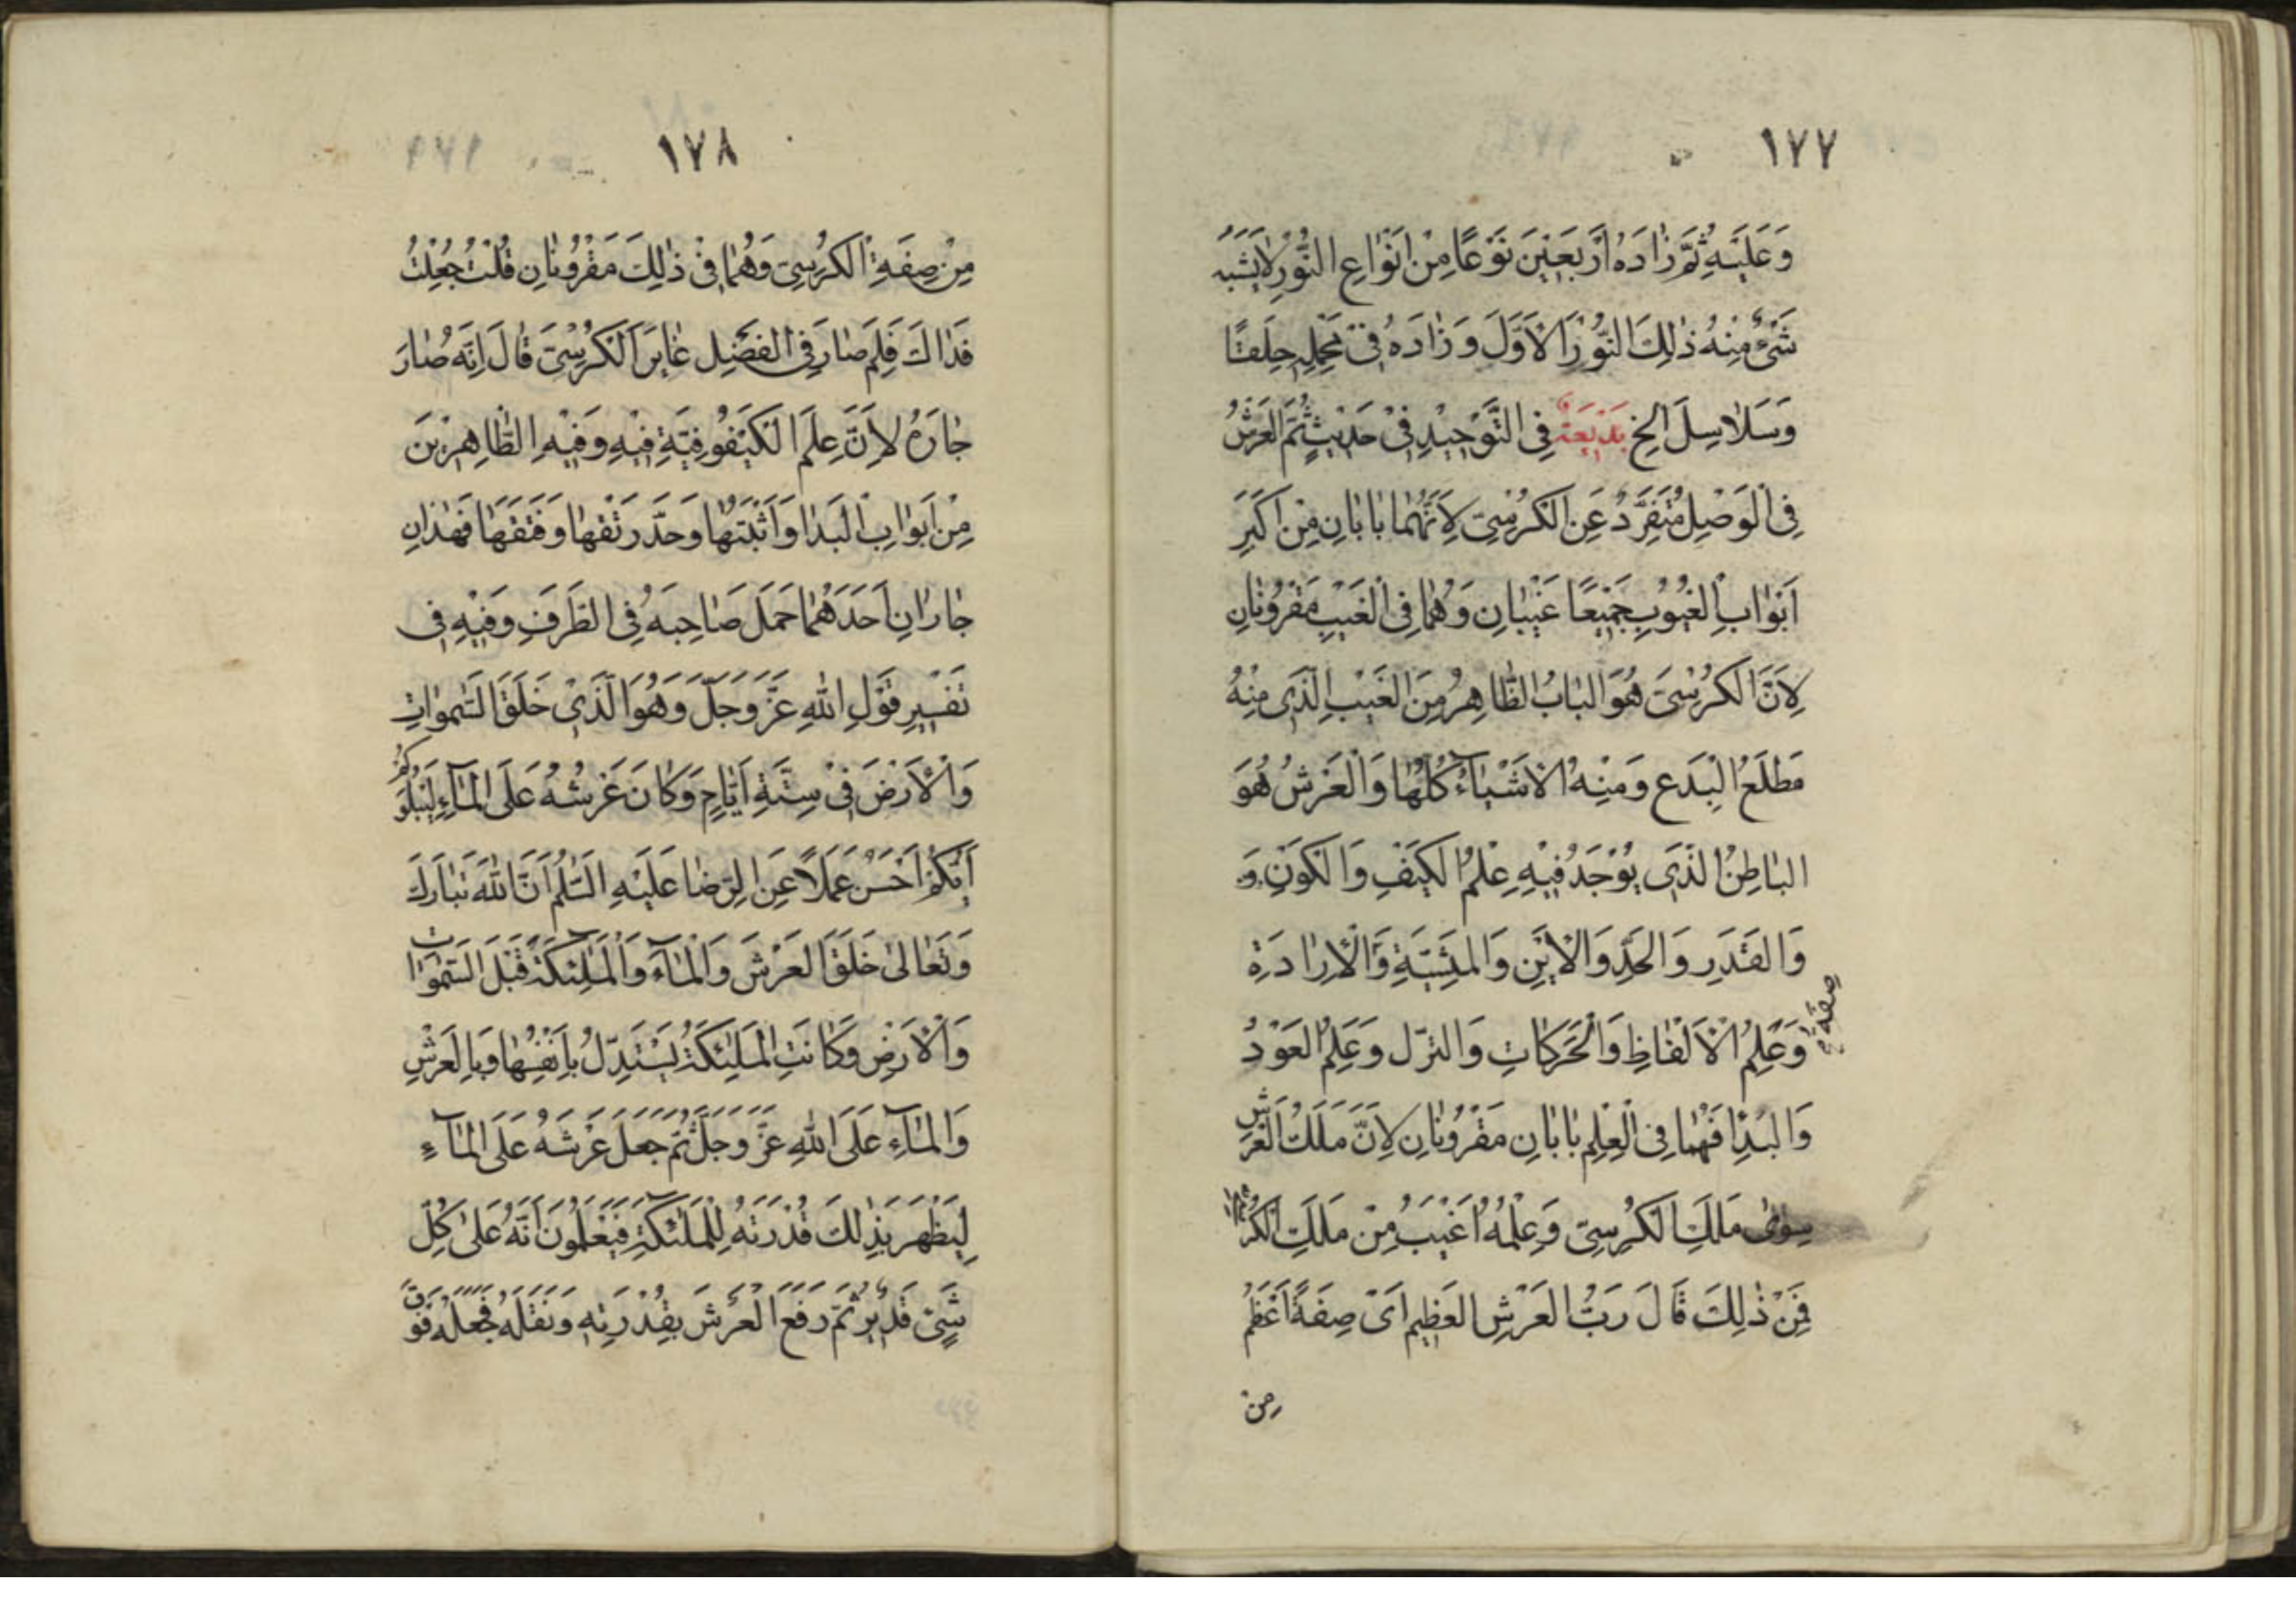 ١٧٧
وَعَلَيْهِ ثُمَّ زٰادَهُ اَرْبَعِيْنَ نَوْعًا مِنْ اَنْوٰاعِ النُّوْرِ لاٰيَشْبَهُ
شَيْءٌ مِنْهُ ذٰلِكَ النُّوْرَ الْاَوَّلَ وَزٰادَهُ فِيْ مَحْمِلِهِ حِلَقًا
وَسَلاٰسِلَ الخ بَدِيْعَةٌ فِي التَّوْحِيْدِ فِيْ حَدِيْثٍ ثُمَّ الْعَرْشُ
فِي الْوَصْلِ مُتَفَرِّدٌ عَنِ الْكُرْسِيِّ لِاَنَّهُمٰا بٰابٰانِ مِنْ اَكْبَرِ
اَبْوٰابِ الْغُيُوْبِ جَمِيْعًا غَيْبٰانِ وَهُمٰا فِي الْغَيْبِ مَقْرُوْنٰانِ
لِاَنَّ الْكُرْسِيَّ هُوَ الْبٰابُ الظّٰاهِرُ مِنَ الْغَيْبِ الَّذِيْ مِنْهُ
مَطْلَعُ الْبِدَعِ وَمِنْهُ الْاَشْيٰآءُ كُلُّهٰا وَالْعَرْشُ هُوَ
الْبٰاطِنُ الَّذِيْ يُوْجَدُ فِيْهِ عِلْمُ الْكَيْفِ وَالْكَوْنِ وَ
وَالْقَدَرِ وَالْحَدِّ وَالْاَيْنِ وَالْمَشِيَّةِ وَالْاِرٰادَةِ
صِفَةِ
وَعِلْمُ الْاَلْفٰاظِ وَالْحَرَكٰاتِ وَالتَّرْكِ وَعِلْمُ الْعَوْدِ
وَالْبَدْاِ فَهُمٰا فِي الْعِلْمِ بٰابٰانِ مَقْرُوْنٰانِ لِاَنَّ مَلَكَ الْعَرْشِ
سِوٰى مَلَكِ الْكُرْسِيِّ وَعِلْمُهُ اَغْيَبُ مِنْ مَلَكِ الْكُرْسِيِّ
فَمِنْ ذٰلِكَ قٰالَ رَبُّ الْعَرْشِ الْعَظِيْمِ اَيْ صِفَةً اَعْظَمُ
مِنْ
١٧٨
مِنْ صِفَةِ الْكُرْسِيِّ وَهُمٰا فِيْ ذٰلِكَ مَقْرُوْنٰانِ قُلْتُ جُعِلْتُ
فَدٰاكَ فَلِمَ صٰارَ فِي الْفَضْلِ غٰايَرَ الْكُرْسِيَّ قٰالَ اِنَّه صٰارَ
جٰارَهُ لِاَنَّ عِلْمَ الْكَيْفُوْفِيَّةِ فِيْهِ وَفِيْهِ الظّٰاهِرْ بَنَ
مِنْ اَبْوٰابِ الْبَدٰا وَاَثْبَتَهٰا وَحَدَّ رَتْقَهٰا وَفَتْقَهٰا فَهٰذٰانِ
جٰارٰانِ اَحَدُهُمٰا حَمَلَ صٰاحِبَهُ فِي الظَّرْفِ وَفِيْهِ فِيْ
تَفْسِيْرِ قَوْلِ اللهِ عَزَّوَجَلَّ وَهُوَ الَّذِيْ خَلَقَ السَّمٰوٰاتِ
وَالْاَرْضَ فِيْ سِتَّةِ اَيّٰامٍ وَكٰانَ عَرْشُهُ عَلَى الْمٰآءِ لِيَبْلُوَكُمْ
اَيُّكُمْ اَحْسَنُ عَمَلًا عَنِ الرِّضٰا عَلَيْهِ السَّلٰمُ اَنَّ اللهَ تَبٰارَكَ
وَتَعٰالىٰ خَلَقَ الْعَرْشَ وَالْمٰآءَ وَالْمَلٰئِكَةَ قَبْلَ السَّمٰوٰاتِ
وَالْاَرْضِ وَكٰانَتِ الْمَلٰئِكَةُ يَسْتَدِلُّ بِاَنْفُسِهٰا وَبِالْعَرْشِ
وَالْمٰآءِ عَلَى اللهِ عَزَّ وَجَلَّ ثُمَّ جَعَلَ عَرْشَهُ عَلَى الْمٰآءِ
لِيُظْهِرَ بِذٰلِكَ قُدْرَتَهُ لِلْمَلٰئِكَةِ فَيَعْلَمُوْنَ اَنَّهُ عَلىٰ كُلِّ
شَيْءٍ قَدِيْرٌ ثُمَّ رَفَعَ الْعَرْشَ بِقُدْرَتِهِ وَنَقَلَهُ فَجَعَلَهُ فَوْقَ